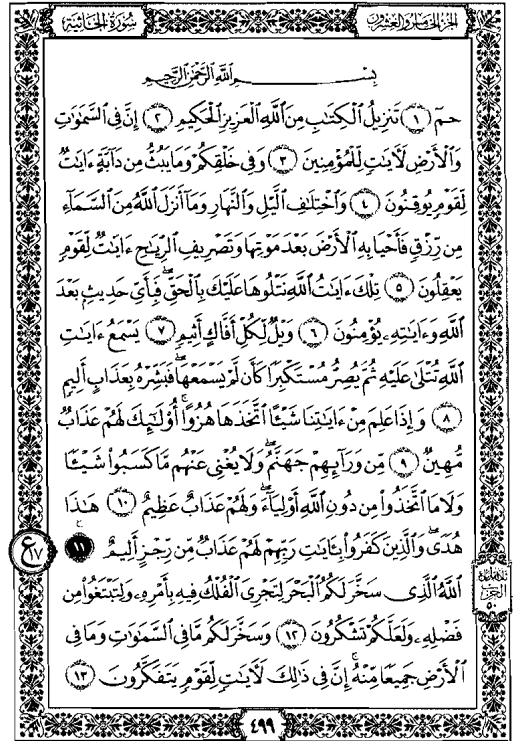 سورة الجاثية
الجزء الخامس والعشرون
بِسْمِ اللَّهِ الرَّحْمَٰنِ الرَّحِيمِ
حمٓ ﴿١﴾ تَنزِيلُ الْكِتَٰبِ مِنَ اللَّهِ الْعَزِيزِ الْحَكِيمِ ﴿٢﴾ إِنَّ فِي السَّمَٰوَٰتِ
وَالْأَرْضِ لَآيَٰتٍ لِّلْمُؤْمِنِينَ ﴿٣﴾ وَفِي خَلْقِكُمْ وَمَا يَبُثُّ مِن دَآبَّةٍ ءَايَٰتٌ
لِّقَوْمٍ يُوقِنُونَ ﴿٤﴾ وَاخْتِلَٰفِ الَّيْلِ وَالنَّهَارِ وَمَآ أَنزَلَ اللَّهُ مِنَ السَّمَآءِ
مِن رِّزْقٍ فَأَحْيَا بِهِ الْأَرْضَ بَعْدَ مَوْتِهَا وَتَصْرِيفِ الرِّيَٰحِ ءَايَٰتٌ لِّقَوْمٍ
يَعْقِلُونَ ﴿٥﴾ تِلْكَ ءَايَٰتُ اللَّهِ نَتْلُوهَا عَلَيْكَ بِالْحَقِّ ۖ فَبِأَيِّ حَدِيثٍ بَعْدَ
اللَّهِ وَءَايَٰتِهِۦ يُؤْمِنُونَ ﴿٦﴾ وَيْلٌ لِّكُلِّ أَفَّاكٍ أَثِيمٍ ﴿٧﴾ يَسْمَعُ ءَايَٰتِ
اللَّهِ تُتْلَىٰ عَلَيْهِ ثُمَّ يُصِرُّ مُسْتَكْبِرًا كَأَن لَّمْ يَسْمَعْهَا ۖ فَبَشِّرْهُ بِعَذَابٍ أَلِيمٍ
﴿٨﴾ وَإِذَا عَلِمَ مِنْ ءَايَٰتِنَا شَيْـًٔا اتَّخَذَهَا هُزُوًا ۚ أُو۟لَٰٓئِكَ لَهُمْ عَذَابٌ
مُّهِينٌ ﴿٩﴾ مِّن وَرَآئِهِمْ جَهَنَّمُ ۖ وَلَا يُغْنِي عَنْهُم مَّا كَسَبُوا۟ شَيْـًٔا
وَلَا مَا اتَّخَذُوا۟ مِن دُونِ اللَّهِ أَوْلِيَآءَ ۖ وَلَهُمْ عَذَابٌ عَظِيمٌ ﴿١٠﴾ هَٰذَا
هُدًى ۖ وَالَّذِينَ كَفَرُوا۟ بِـَٔايَٰتِ رَبِّهِمْ لَهُمْ عَذَابٌ مِّن رِّجْزٍ أَلِيمٌ ﴿١١﴾
ع
١٧
اللَّهُ الَّذِي سَخَّرَ لَكُمُ الْبَحْرَ لِتَجْرِيَ الْفُلْكُ فِيهِ بِأَمْرِهِۦ وَلِتَبْتَغُوا۟ مِن
فَضْلِهِۦ وَلَعَلَّكُمْ تَشْكُرُونَ ﴿١٢﴾ وَسَخَّرَ لَكُم مَّا فِي السَّمَٰوَٰتِ وَمَا فِي
الْأَرْضِ جَمِيعًا مِّنْهُ ۚ إِنَّ فِي ذَٰلِكَ لَآيَٰتٍ لِّقَوْمٍ يَتَفَكَّرُونَ ﴿١٣﴾
ثلاثة أرباع
الحزب
٥٠
٤٩٩